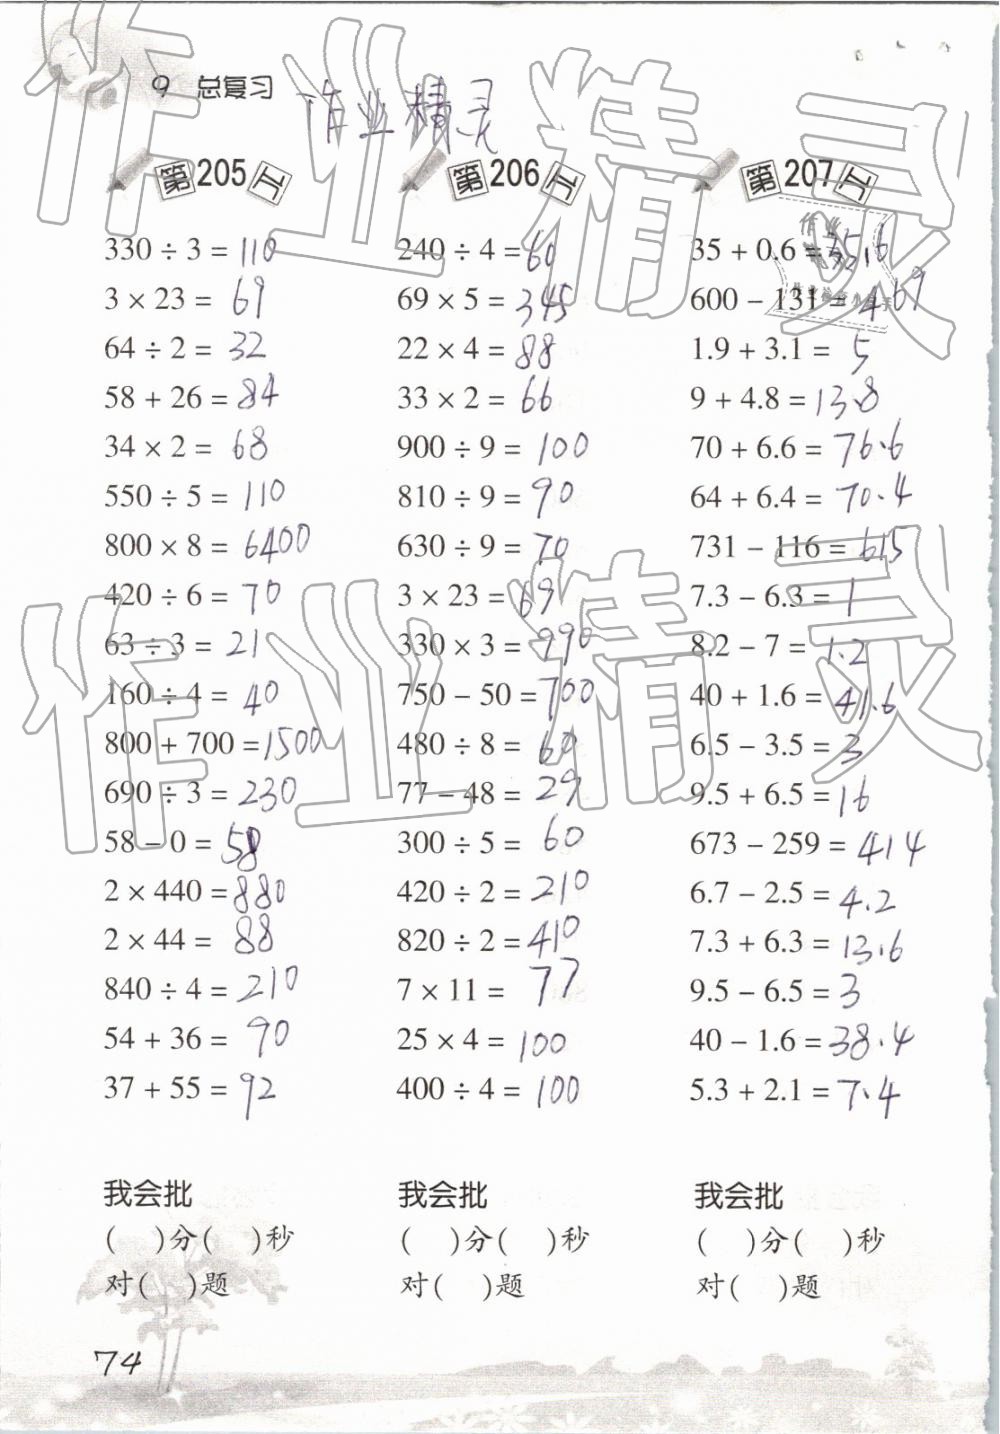 9 总复习 作业精灵
第205片
330 ÷ 3 = 110
3 × 23 = 69
64 ÷ 2 = 32
58 + 26 = 84
34 × 2 = 68
550 ÷ 5 = 110
800 × 8 = 6400
420 ÷ 6 = 70
63 ÷ 3 = 21
160 ÷ 4 = 40
800 + 700 = 1500
690 ÷ 3 = 230
58 - 0 = 58
2 × 440 = 880
2 × 44 = 88
840 ÷ 4 = 210
54 + 36 = 90
37 + 55 = 92
我会批
( )分( )秒
对( )题
第206片
240 ÷ 4 = 60
69 × 5 = 345
22 × 4 = 88
33 × 2 = 66
900 ÷ 9 = 100
810 ÷ 9 = 90
630 ÷ 9 = 70
3 × 23 = 69
330 × 3 = 990
750 - 50 = 700
480 ÷ 8 = 60
77 - 48 = 29
300 ÷ 5 = 60
420 ÷ 2 = 210
820 ÷ 2 = 410
7 × 11 = 77
25 × 4 = 100
400 ÷ 4 = 100
我会批
( )分( )秒
对( )题
第207片
35 + 0.6 = 35.6
600 - 131 = 469
1.9 + 3.1 = 5
9 + 4.8 = 13.8
70 + 6.6 = 76.6
64 + 6.4 = 70.4
731 - 116 = 615
7.3 - 6.3 = 1
8.2 - 7 = 1.2
40 + 1.6 = 41.6
6.5 - 3.5 = 3
9.5 + 6.5 = 16
673 - 259 = 414
6.7 - 2.5 = 4.2
7.3 + 6.3 = 13.6
9.5 - 6.5 = 3
40 - 1.6 = 38.4
5.3 + 2.1 = 7.4
我会批
( )分( )秒
对( )题
74
作业精灵
作业精灵